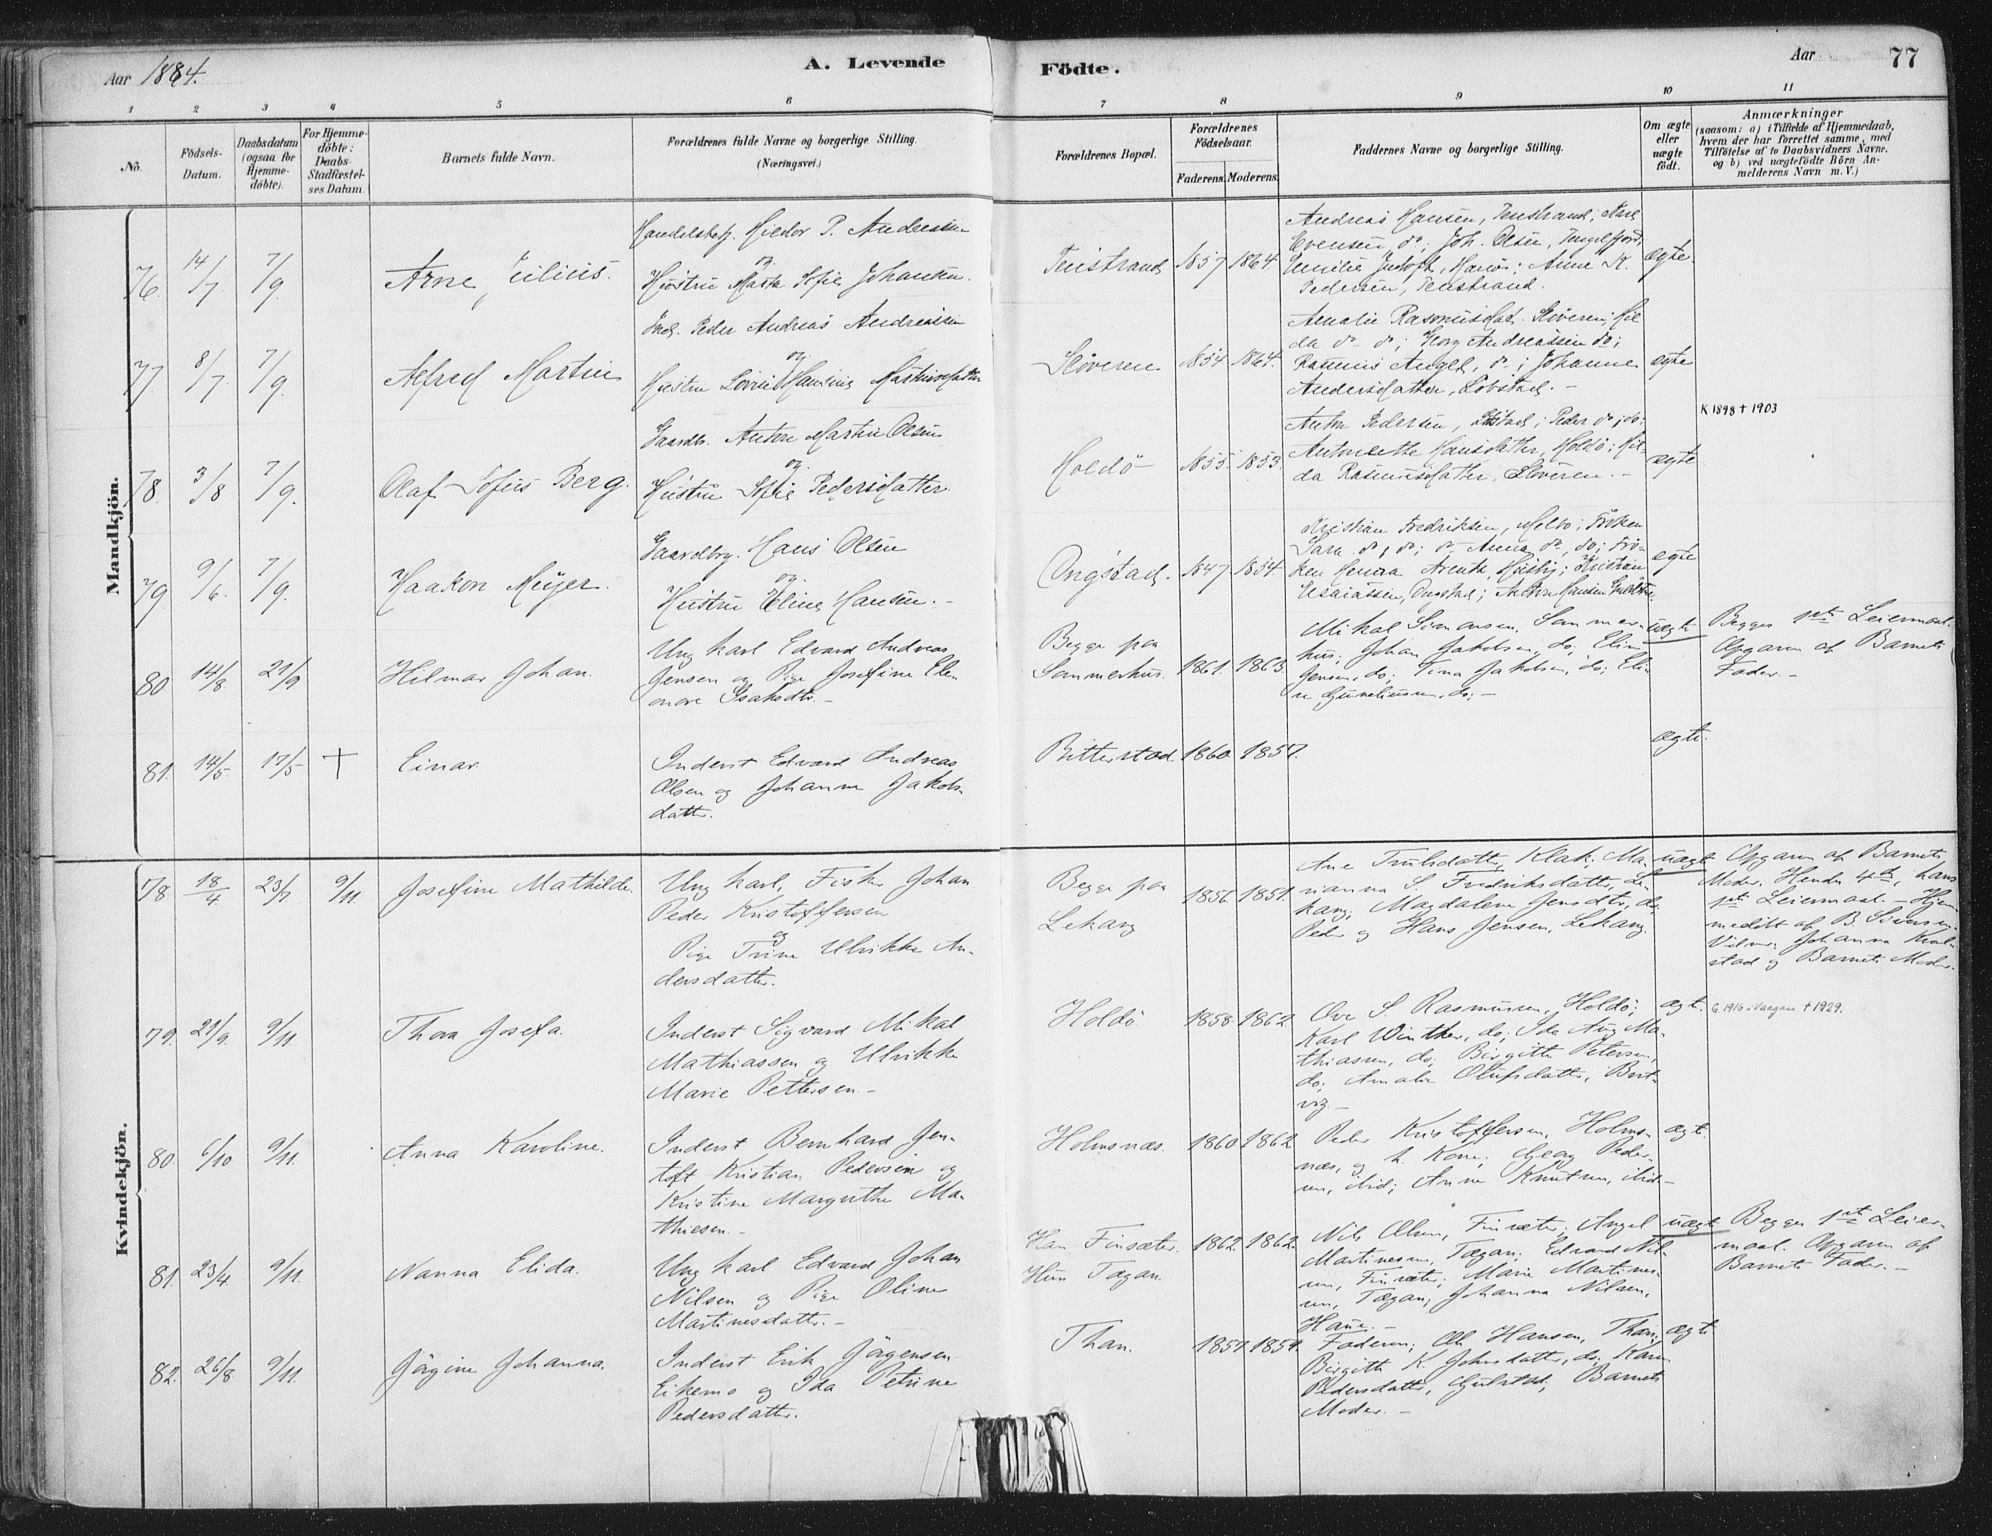 Aar 1884.
A. Levende
Födte.
Aar
77
1 2 3 4 5 6 7 8 9 10 11
No.
Födsels-
Datum.
Daabsdatum
(ogsaa for
Hjemme-
döbte).
For Hjemme-
döbte:
Daabs-
Stadfæstel-
ses Datum.
Barnets fulde Navn.
Forældrenes fulde Navne og borgerlige Stilling.
(Næringsvei.)
Forældrenes Bopæl.
Forældrenes
Födselsaar.
Faderens. Moderens.
Faddernes Navne og borgerlige Stilling.
Om ægte
eller
uægte
födt.
Anmærkninger
(saasom: a) i Tilfælde af Hjemmedaab,
hvem der har forrettet samme, med
Tilföielse af to Daabsvidners Navne.
og b) ved uægtefödte Börn An-
melderens Navn m. V.)
Mandkjön.
76. 14/7 7/9 Arne Julius.
P. Andreassen
og
Hustru Marta Sofie Johansen.
Tenstrand 1857 1864
Andreas Hansen, Tenstrand;
Evensen do; Joh. Olsen,
Emilie
Pedersen, Tenstrand.
ægte.
77. 8/7 7/9. Alfred Martin
Inds. Peder Andreas Andreassen
og
Hustru Lovise Hansine
1854 1864.
Amalie Rasmusdat.
da do do; Georg Andreassen do;
Rasmus Angel, do; Johanne
Andersdatter,
ægte
78. 3/8 7/9. Olaf Sofus Berg.
Gaardb. Anton Martin Olsen
og
Hustru Sofie Pedersdatter.
Holdö 1855. 1853.
Anton Pedersen, Peder do; do;
Antonette Hansdatter, Holdö; Hil-
da Rasmusdatter,
ægte
K 1898 + 1903
79. 9/6. 7/9. Haakon Meyer.
Gaardbrg. Hans Olsen
og
Hustru Eline Hansen. -
Ongstad. 1847. 1854.
Kristian Fredriksen, Melbo; Fröken
Sara do, do; do Anna do, do; Frö-
ken
Esaiassen, Ongstad; Anton Hansen
ægte
80 14/8 21/9 Hilmar Johan.
Ung karl Edvard Andreas
Jensen og Pige Josefine Ele-
onore Isaksdtr. -
Begge paa
Sommerhus. 1861. 1863.
Mikal Simonsen, Sommer-
hus; Johan Jakobsen, do; Elin
Jensen, do; Tina Jakobsen, do; Eli-
ne do; -
uægte
Begges 1ste Leiermaal.
Opgaven af Barnets
Fader. -
81. 14/5. 17/5 + Einar
Inderst Edvard Andreas
Olsen og Johanne Jakobs-
datter.
Bitterstad. 1860. 1857.
ægte.
Kvindekjön.
78 18/4 23/7 9/11. Josefine Mathilde.
Ung karl, Fisker Johan
Peder Kristoffersen
og
Pige Trine Ulrikke An-
dersdatter.
Begge paa
Lekang
1856. 1851.
Ane Trulsdatter, Klak; Ma-
rianna S. Fredriksdatter, Le-
kang; Magdalene Jensdtr, do;
Peder og Hans Jensen, Lekang.
uægt.
Opgaven af Barnets
Moder. Hendes 4de, hans
1ste Leiermaal. - Hjem-
medöbt af B. Sivertsen.
Vidner: Johanna
stad og Barnets Moder.
79. 21/9. 9/11. Thora Josefa.
Inderst Sigvard Mikal
Mathiassen og Ulrikke
Marie Pettersen. -
Holdö. 1858. 1862.
Ove S. Rasmussen, Holdö;
Karl Winther, do; Ida Aug. Ma-
thiassen, do; Birgitte Petersen,
do; Amalie Olufsdatter,
vig -
ægt.
G. 1916 i Vaagan + 1929.
80 6/10 9/11. Anna Karoline.
Inderst Bernhard Jen-
toft Kristian Pedersen og
Kristine Margrethe Ma-
thiesen. -
Holmsnæs. 1860 1862.
Peder Kristoffersen, Holms-
næs, og h. Kone; Georg Peder-
sen, ibid; Anne Knutsen, ibid -
ægt.
81. 23/4. 9/11. Nanna Elida.
Ung karl Edvard Johan
Nilsen og Pige Oline
Martinesdatter. -
Han Finsæter.
Hun Tægan.
1862. 1862.
Nils Olsen, Finsæter; Angel
Martinesen, Tægan; Edvard Nil-
sen, Finsæter; Marie Martines-
sen, Tægan; Johanna Nilsen,
Haue. -
uægt.
Begges 1ste Leier-
maal. Opgaven af
Barnets Fader. -
82. 26/8. 9/11. Jörgine Johanna.
Inderst Erik Jörgensen
Eikemo og Ida Petrine
Pedersdatter.
Than. 1857. 1857.
Faderen; Ole Hansen, Than;
Birgitte K. Johnsdatter, do; Karen
Pedersdatter, Gulstad; Barnets
Moder. -
ægt.